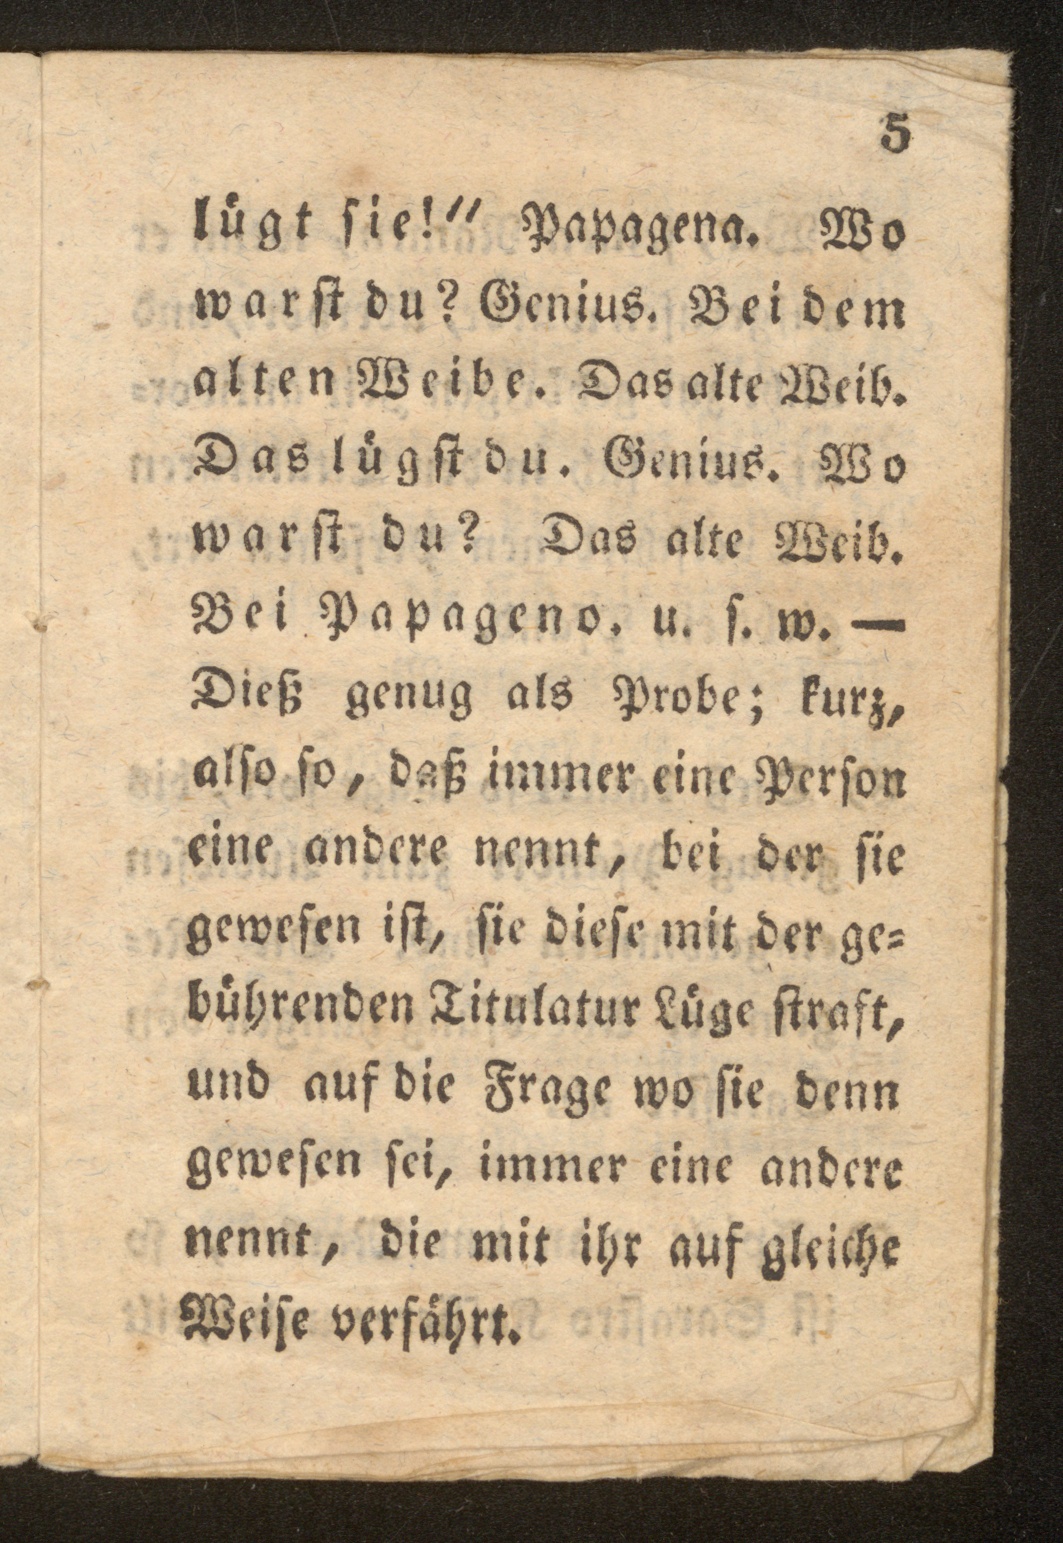 5
lügt sie!“ Papagena. Wo
warst du? Genius. Bei dem
alten Weibe. Das alte Weib.
Das lügst du. Genius. Wo
warst du? Das alte Weib.
Bei Papageno. u. s. w. —
Dieß genug als Probe; kurz,
also so, daß immer eine Person
eine andere nennt, bei der sie
gewesen ist, sie diese mit der ge-
bührenden Titulatur Lüge straft,
und auf die Frage wo sie denn
gewesen sei, immer eine andere
nennt, die mit ihr auf gleiche
Weise verfährt.